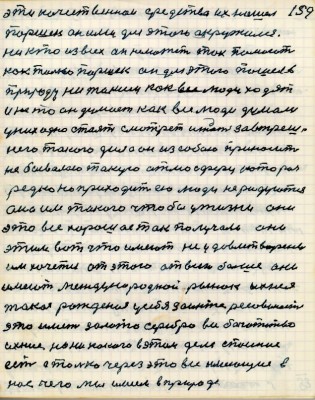 эти качественная средства их нашел 159
Поршек он или для этого окружился.
Ни кто из всех он не может так помогат
как только Поршек он для этого пошел в
природу ни таким как все люди ходят
и не то он думает как все люди думали
у них одно стоят смотрет и ждат завтреш-
него такого дела он из собою приносит
не бывалаю такую атмосферу которая
редко но приходит ею люди не радуются
Она им такого чтобы у жизни они
это все хорошое так получаль они
этим вот что имеют не удовлетворены
им хочется от этого а твоих больше они
имеют международной рынок и нея
такая рождения у себя заимте рисовали
это имет золото серебро все богатство
ихнее, но ни какого в этом деле спасение
ест а только через это все имеющие в
нас чего мы имеем в природе